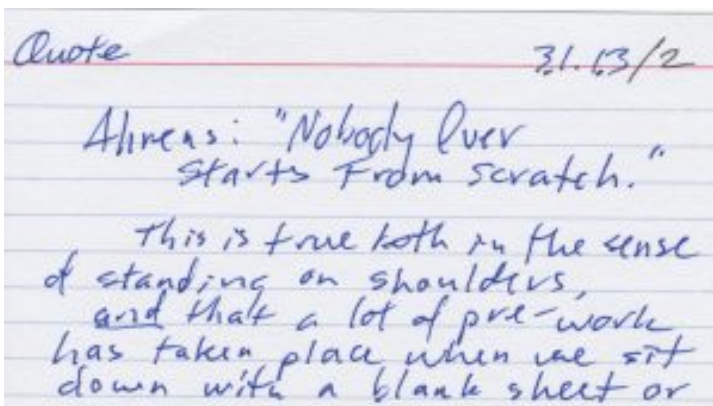 Quote 3.1.13/2
Ahrens: "Nobody Ever
Starts From Scratch."
This is true both in the sense
of standing on shoulders,
and that a lot of pre-work
has taken place when we sit
down with a blank sheet or